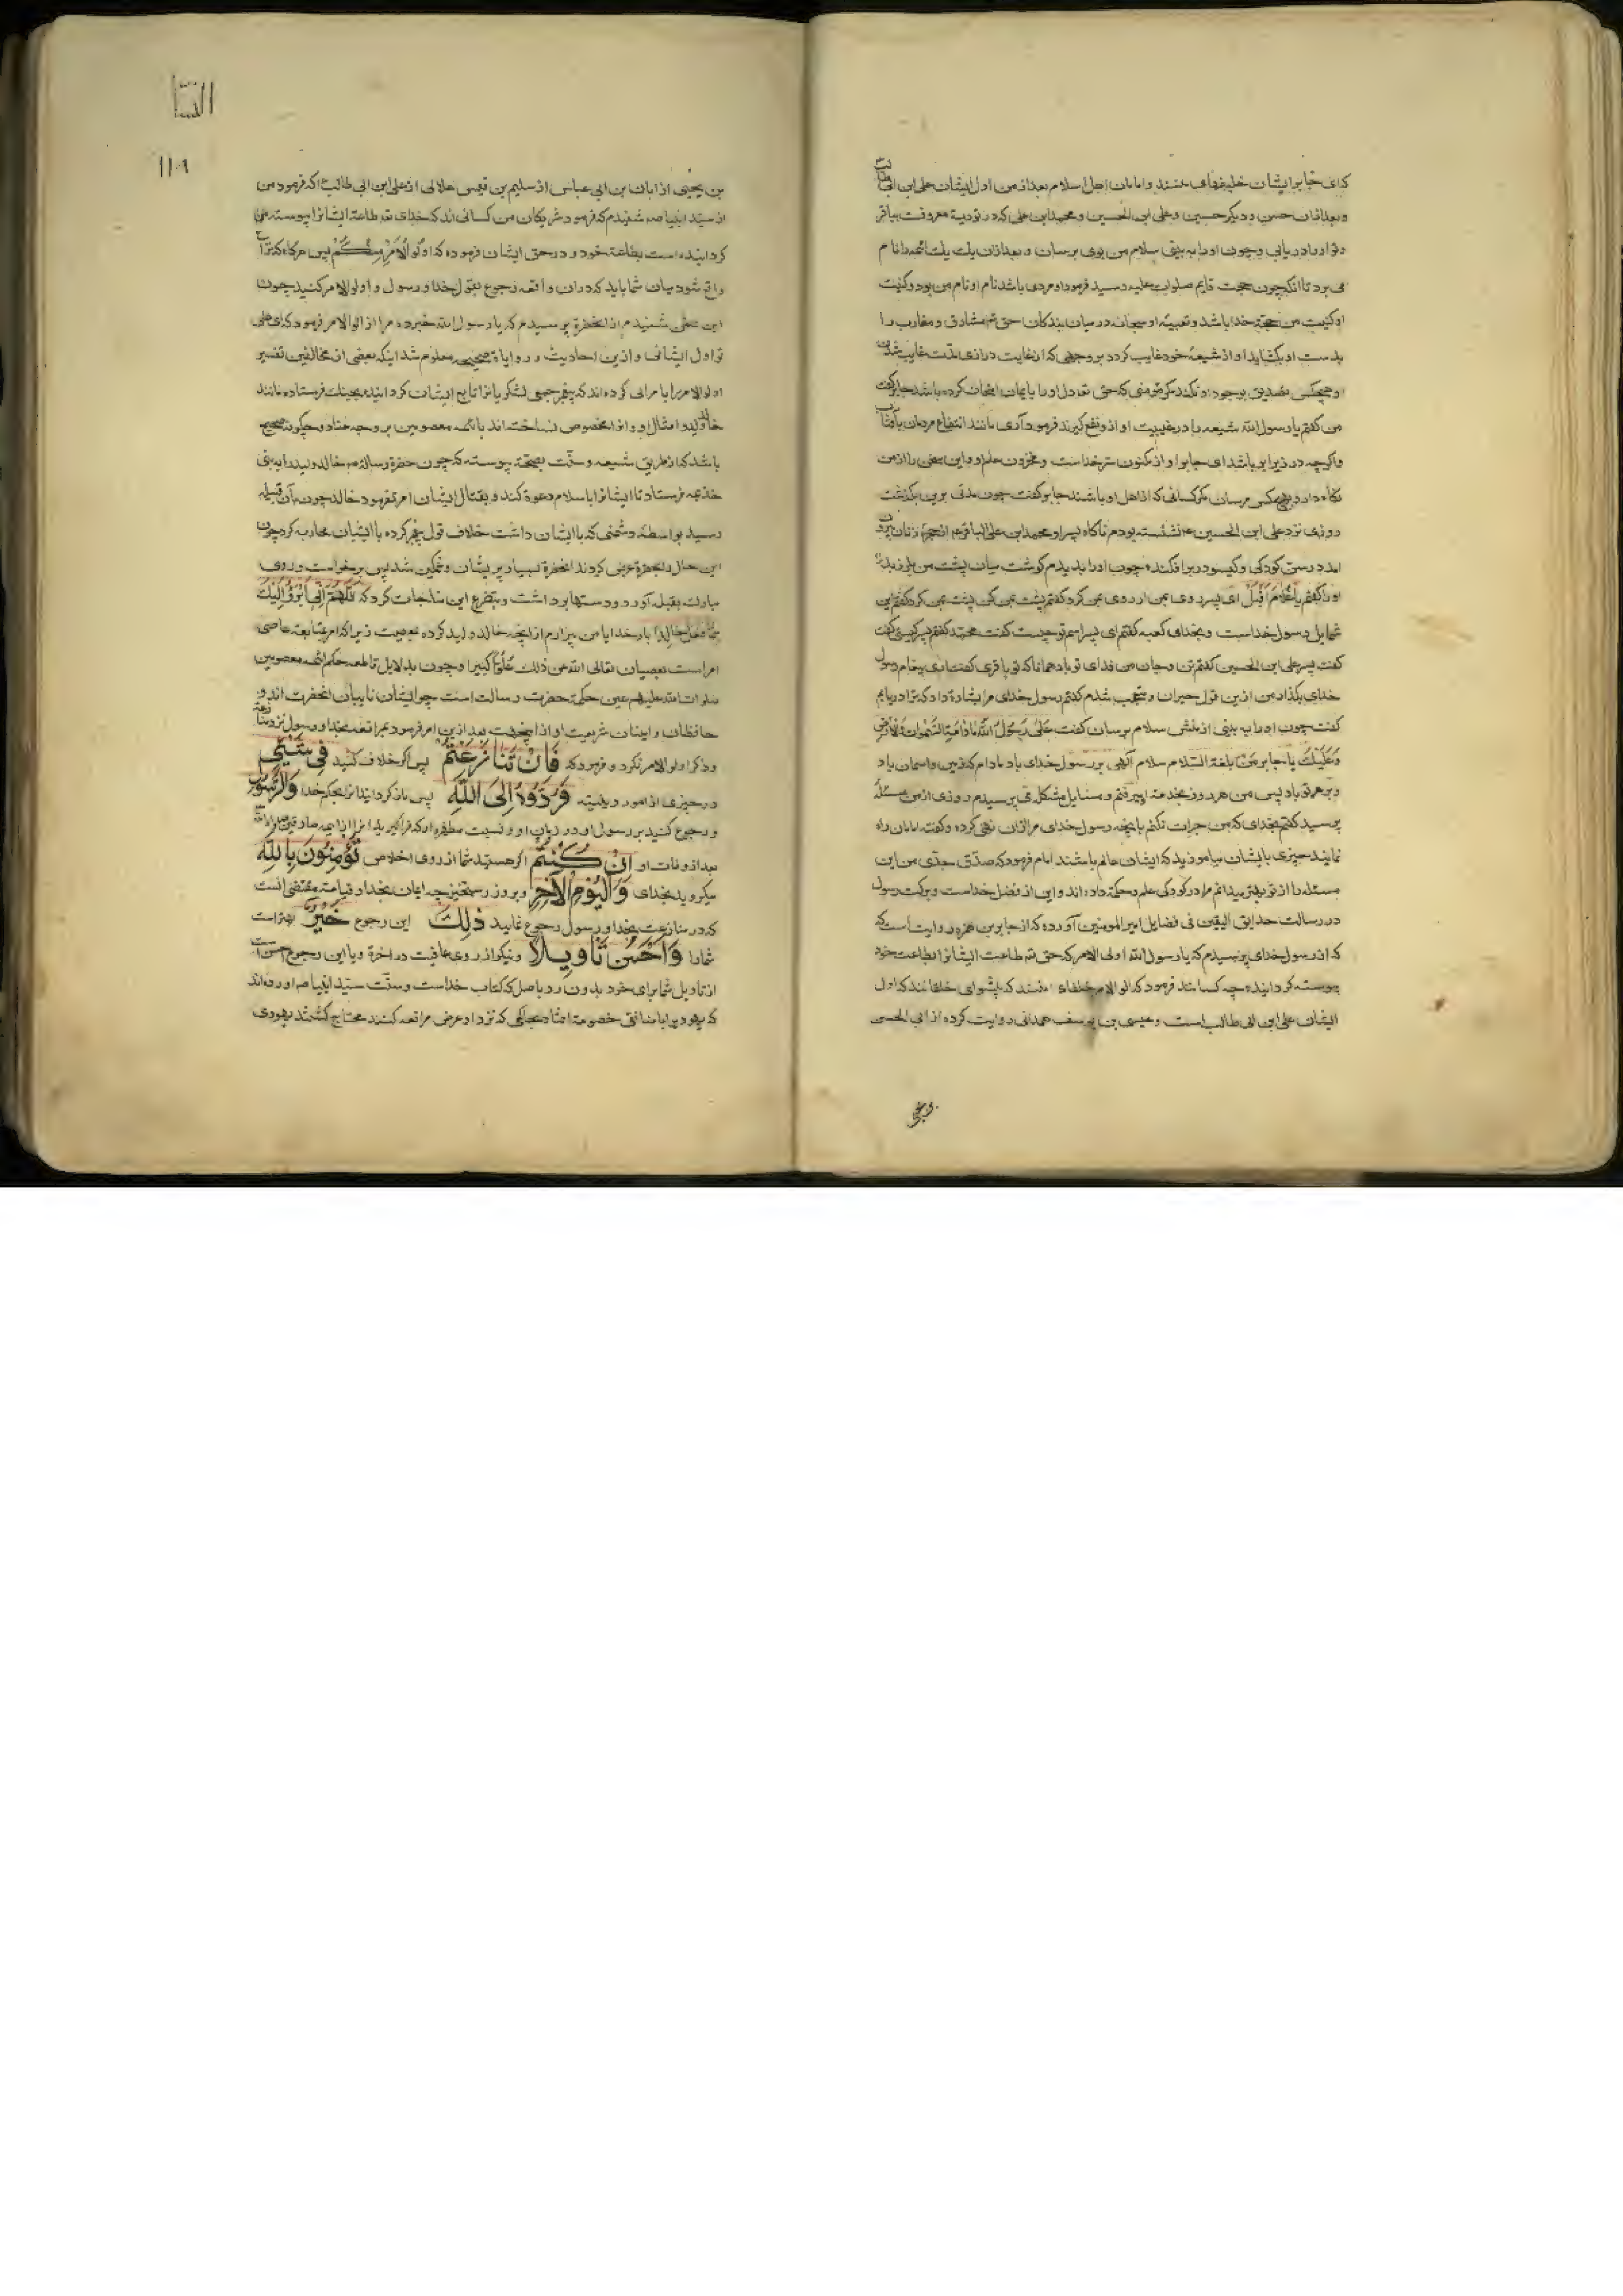 کدای جابر ایشان خلیفهای منند و امامان اهل اسلام بعد از من اول ایشان علی ابن ابی طالب
و بعد از ان حسن و دیگر حسین و علی ابن الحسین و محمد ابن علی که در توریة معروفست بباقر
و تو او را دریابی و چون او را به بینی سلام من بوی برسان و بعد از ان یك یك ائمه را نام
می برد تا انکه چون حجت قایم صلوات علیه رسید فرمود او مردی باشد نام او نام من بود و کنیت
او کنیت من حجة خدا باشد و بقیه او سبحانه در میان بندکان حق تع مشارق و مغارب را
بدست او بکشاید او از شیعهٔ خود غایب کردد بر وجهی که از غایت درازی مدت غایب شدن
او هیچکس تصدیق بوجود او نکند مکر مؤمنی که حق تع دل او را بایمان امتحان کرده باشد جابر کفت
من کفتم یا رسول الله شیعه را در غیبت او از و نفع کیرند فرمود آری مانند انتفاع مردمان بآفتاب
واکرچه در زیر ابر باشد ای جابر او از مکنون سر خداست و مخزون علم او و این سخن را از من
نکاه دار و بهیچکس مرسان مکر کسانی که از اهل او باشند جابر کفت چون مدتی برین بکذشت
روزی نزد علی ابن الحسین ع نشسته بودم ناکاه پسر او محمد ابن علی الباقر ع از حجرهٔ زنان بیرون
امد در سن کودکی و کیسو در بر افکنده چون او را بدیدم کوشت میان پشت من بلرزید
او را کفتم یَا غُلامُ اَقْبِلْ ای پسر روی بمن ار روی بمن کرد کفتم پشت بمن کن پشت بمن کرد کفتم این
شمایل رسول خداست و بخدای کعبه کفتم ای پسر اسم تو چیست کفت محمد کفتم پسر کیستی کفت
کفت پسر علی ابن الحسین کفتم تن و جان من فدای تو باد همانا که تو باقری کفت آری پیغام رسول
خدای بکذار من ازین قول حیران و متعجب شدم کفتم رسول خدای مرا بشارة داد که ترا دریابم
کفت چون او را به بینی از منش سلام برسان کفت عَلیٰ رَسُولِ اللهِ مَا دَامَتِ السَّمٰوَاتُ وَالْاَرْضُ
وَعَلَیْكَ یا جابر بما بلغت السّلام سلام آلهی بر رسول خدای باد مادام که زمین و اسمان باد
و بر تو باد پس من هر روز بخدمة او میرفتم و مسایل مشکله می پرسیدم روزی از من مسئلهٔ
پرسید کفتم بخدای که من جرات نکنم بانچه رسول خدای مرا از ان نهی کرده و کفته امامان راه
نمایند چیزی بایشان میاموزید که ایشان عالم باشند امام فرمود که صدق جدّی من این
مسئله را از تو بهتر میدانم مرا در کودکی علم و حکمة داده اند و این از فضل خداست و برکت رسول
در رسالت حدایق الیقین فی فضایل امیر المومنین آورده که از جابر بن روایت است که
که از رسول خدای پرسیدم که یا رسول الله اولی الامر که حق تع طاعت ایشانرا بطاعت خود
پیوسته کردانیده چه کسانند فرمود که الو الامر خلفاء منند که پیشوای خلقانند که اول
ایشان علی ابن ابی طالب است و عیسی بن یوسف همدانی روایت کرده از ابی الحسن
بن یحیی
النسا
۱۱۰۹
بن یحیی از ابان بن ابی عیاس از سلیم بن قیس هلالی از علی ابن ابی طالب ع که فرمود من
از سید انبیا صم شنیدم که فرمود شریکان من کسانی اند که خدای تع طاعة ایشانرا پیوسته من
کردانیده است بطاعة خود و در حق ایشان فرموده که اولو الْاَمْرِ مِنْكُمْ پس هرکاه که نزاع
واقع شود میان شما باید که دران واقعه رجوع بقول خدا و رسول و اولو الامر کنید چون
این سخن شنیدم از انحضرة پرسیدم که یا رسول الله خبر ده مرا از الو الامر فرمود که ای علی
تو اول ایشانی و ازین احادیث و روایاة صحیحه معلوم شد اینکه بعضی از مخالفین تفسیر
اولو الامر را بامرائی کرده اند که پیغمبر جمعی لشکریانرا تابع ایشان کردانیده بجنك فرستاده مانند
خالد ولید و امثال او و انرا مخصوص نساخته اند بائمه معصومین بر وجه عناد و چکونه صحیح
باشد که از طریق شیعه و سنّت بصحّة پیوسته که چون حضرة رسالة صم خالد ولید را به بنی
خذیمه فرستاد تا ایشانرا باسلام دعوة کند و بقتال ایشان امر نفرمود خالد چون بآن قبیله
رسید بواسطه دشمنی که با ایشان داشت خلاف قول پیغمبر کرده با ایشان محاربه کرد چون
این حال بحضرة عرض کردند انحضرة بسیار پریشان و غمکین شد پس برخواست و روی
مبارك بقبله آورد و دستها برداشت و بتضرع این مناجات کرد که اللّٰهُمَّ اِنِّی اَبْرَءُ اِلَیْكَ
مِمَّا فَعَلَ خَالِدٌ بار خدایا من بیزارم از انچه خالد ولید کرده معصیت زیرا که امر بمتابعة عاصی
امر است بعصیان تعالی الله عن ذلك عُلُوًّا کبیرا و چون بدلایل قاطعه حکم ائمه معصومین
صلوات الله علیهم عین حکم حضرت رسالت است چو ایشان نایبان انحضرت اند و
حافظان و امینان شریعت او از اینجهت بعد ازین امر فرمود بمراقعه بخدا و رسول نزد منازعة
و ذکر اولو الامر نکرد و فرمود که فَاِنْ تَنَازَعْتُمْ پس اکر خلاف کنید فِی شَیْءٍ
در چیزی از امور دینیه فَرُدُّوهُ اِلَی اللّٰهِ پس باز کردانید انرا بحکم خدا وَالرَّسُولِ
و رجوع کنید بر رسول او در زمان او و نسبت مطهره او که فراکیرید انرا از ایمه صادقین
بعد از وفات او اِنْ كُنْتُمْ اکر هستید شما از روی اخلاص تُؤْمِنُونَ بِاللّٰهِ
میکروید بخدای وَالْیَوْمِ الْآخِرِ و بروز رستخیز چه ایمان بخدا و قیامة مقتضی انست
که در منازعت بخدا و رسول رجوع نمایید ذٰلِكَ این رجوع خَیْرٌ بهتر است
شما را وَاَحْسَنُ تَأْوِیلًا و نیکوتر از روی عاقبت در اخرة و یا این رجوع احسن است
از تاویل شما برای خود بدون رد باصل که کتاب خداست و سنّت سیّد انبیا صم اورده اند
که یهودی را با منافقی خصومة افتاد بحاکمی که نزد او عرض مرافعه کنند محتاج کشتند یهودی